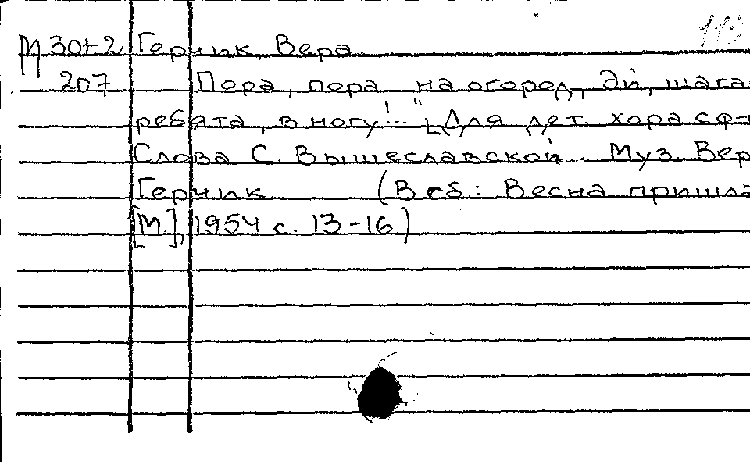 М 30-2 Герчик, Вера
207 Пора, пора на огород, Эй, шага
ребята, в ногу!.." [Для дет. хора с ф-
Слова С. Вышеславской. Муз. Вер
Герчик (В сб: Весна пришла
[М.], 1954 с. 13-16)